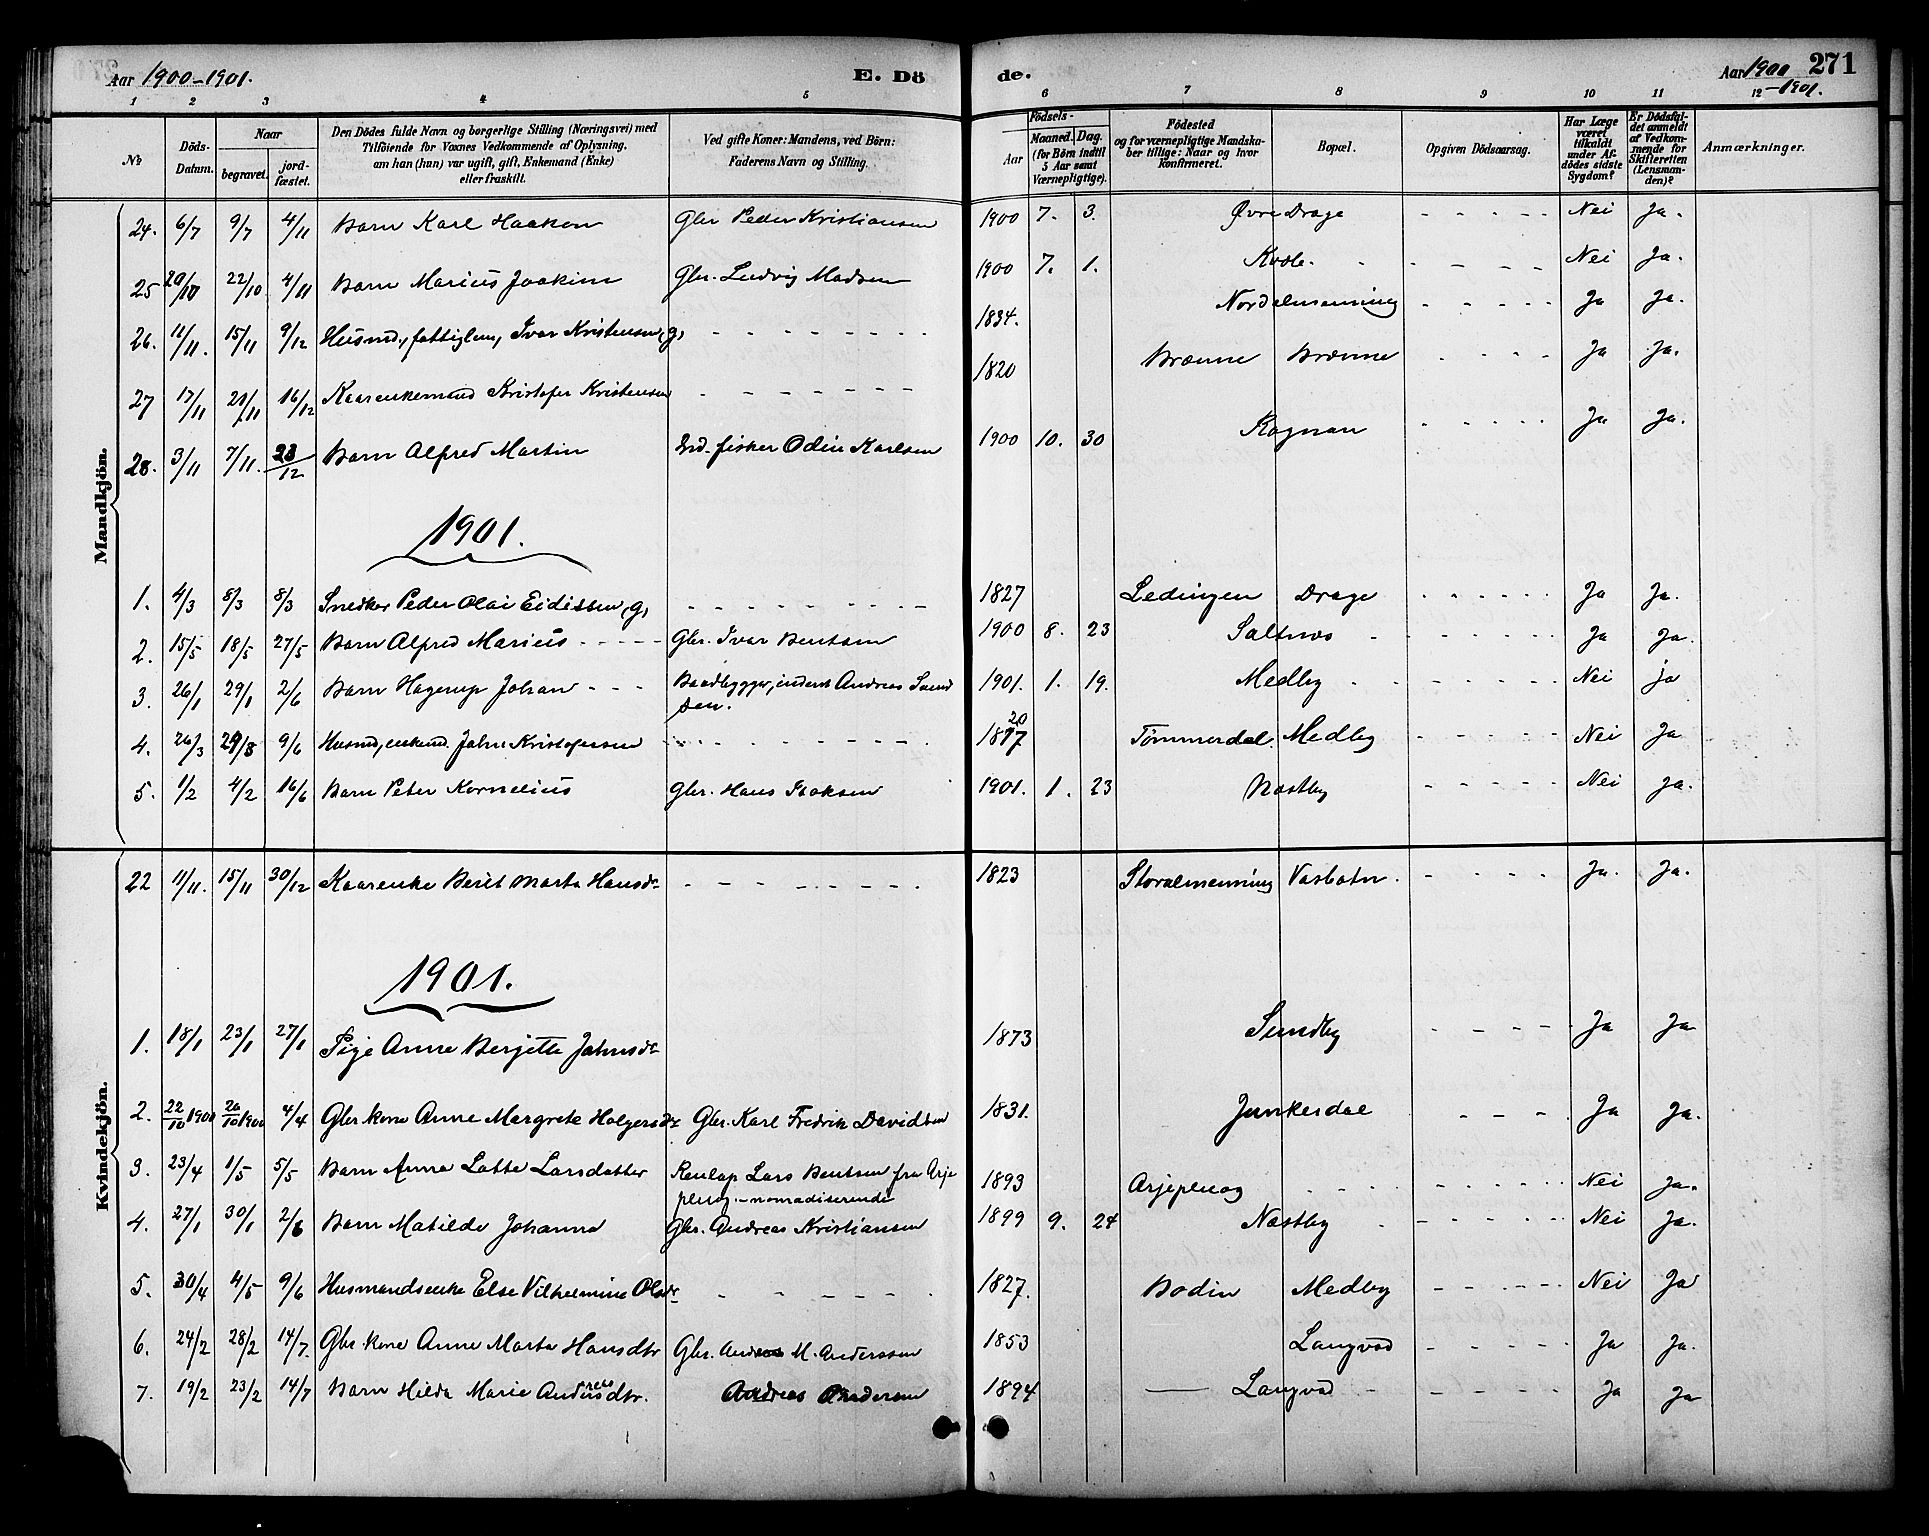 Aar 1900-1901. E. Dö de. Aar 1900-1901. 271
1 2 3 4 5 6 7 8 9 10 11 12
No
Döds-Datum.
Naar
begravet.
jord-fæstet.
Den Dödes fulde Navn og borgerlige Stilling (Næringsvei) med
Tilföiende for Voxnes Vedkommende af Oplysning,
om han (hun) var ugift, gift, Enkemand (Enke)
eller fraskilt.
Ved gifte Koner: Mandens, ved Börn:
Faderens Navn og Stilling.
Födsels-
Aar
Maaned. Dag.
(for Börn indtil
5 Aar samt
Værnepligtige).
Födested
og for værnepligtige Mandska-
ber tillige: Naar og hvor
konfirmeret.
Bopæl.
Opgiven Dödsaarsag.
Har Læge
været
tilkaldt
under Af-
dödes sidste
Sygdom?
Er Dödsfal-
det anmeldt
af Vedkom-
mende for
Skifteretten
(Lensman-
den)?
Anmærkninger.
Mandkjön.
24. 6/7 9/7 4/11 Barn Karl Haakon Gbr Peder Kristiansen 1900 7. 3. Øvre Drage - - - - - Nei Ja.
25 20/10 22/10 4/11 Barn Marius Joakim Gbr. Ludvig Madsen 1900 7. 1. Kvæle - - - - Nei Ja.
26. 11/11. 15/11 9/12 Husmd., fattiglem, Ivar Kristensen, (g) - - - - - - - - 1834. Nordalmenning - - - - - Ja Ja.
27 17/11 21/11 16/12 Kaarenkemand Kristofer Kristensen - - - - - - - 1820 Brænne Brænne - - - - Ja Ja.
28. 3/11 7/11. 23/12 Barn Alfred Martin Ind. fisker Odin Karlsen 1900 10. 30 Rognan - - - - - Ja Ja.
1901.
1. 4/3 8/3 8/3 Snedker Peder Olai Eidissen, (g) - - - - - - - - - 1827 Lødingen Drage - - - - - - Ja Ja.
2. 15/5 18/5 27/5 Barn Alfred Marius - - - - Gbr. Ivar Bentsen 1900 8. 23 Saltnes - - - - - - Ja Ja.
3. 26/1 29/1 2/6 Barn Hagerup Johan - - - Baadbygger, inderst Andreas Svend
sen. 1901. 1. 19. Medby - - - - - - Nei ja
4. 26/3 29/3 9/6 Husmd, enkemd. John Kristofersen - - - - - - - - - 20
1817 Tømmerdal. Medby - - - - - Nei Ja
5. 1/2 4/2 16/6 Barn Peter Kornelius Gbr. Hans Isaksen 1901. 1. 23 Nestby - - - - - Nei Ja.
Kvindekjön.
22 11/11. 15/11 30/12 Kaarenke Berit Marta Hansdr - - - - - - - 1823 Storalmenning Vasbotn. - - - - - Ja. Ja.
1901.
1. 18/1 23/1 27/1 Pige Anne Berjette Johnsdr 1873 Sundby - - - - - Ja Ja
2. 22/10 1900 20/10 1900 4/4 Gbr. kone Anne Margrete Holgersdr Gbr. Karl Fredrik Davidsen 1831. Junkerdal - - - Ja Ja.
3. 23/4 1/5 5/5 Barn Anna Lotta Larsdatter Renlap Lars Bentsen fra Arje
pluog. - nomadiserende 1893 Arjepluog - - - - - - - Nei Ja.
4. 27/1 30/1 2/6 Barn Matilde Johanna Gbr. Andreas Kristiansen 1899 9. 24 Nestby - - - - - - Nei Ja.
5. 30/4 4/5 9/6 Husmandsenke Else Vilhelmine Olsdr - - - - - - 1827. Bodin Medby - - - - - Nei Ja
6. 24/2 28/2 14/7. Gbr. kone Anne Marta Hansdtr Gbr. Andreas M. Anderssen 1853 Langvad - - - - - Ja Ja.
7. 19/2 23/2 14/7 Barn Hilda Marie Andreasdtr. Andreas Andersen 1894 — Langvad - - - - - Ja Ja